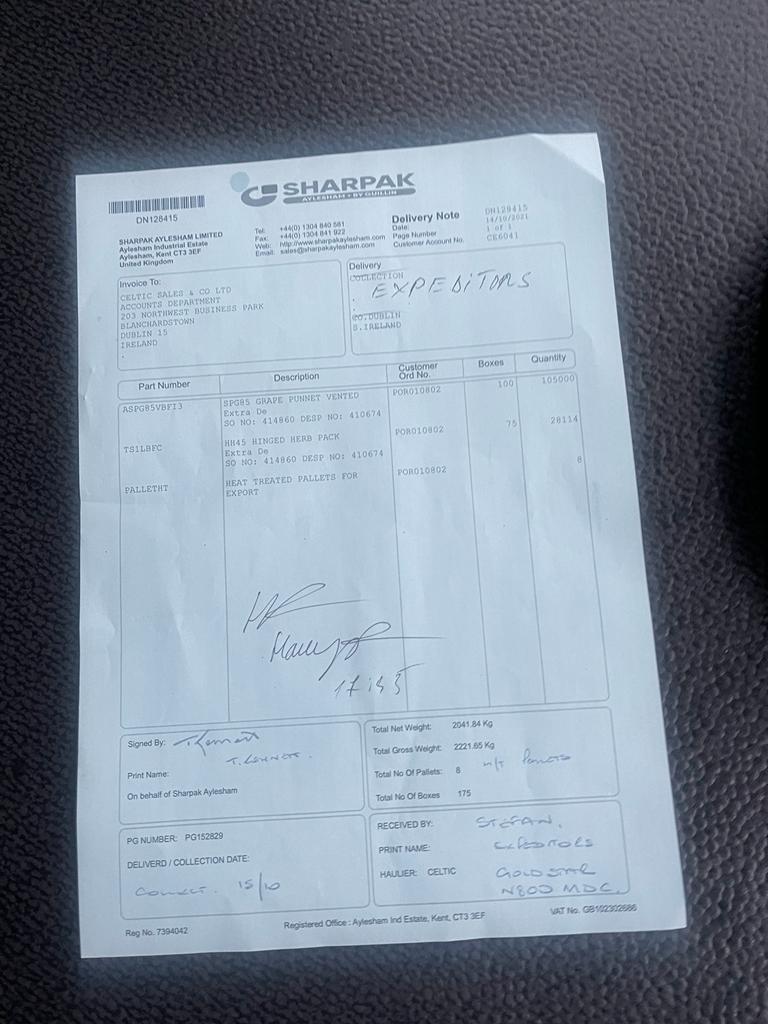 SHARPAK
AYLESHAM • BY GUILLIN
DN128415
SHARPAK AYLESHAM LIMITED
Aylesham Industrial Estate
Aylesham, Kent CT3 3EF
United Kingdom
Tel: +44(0) 1304 840 581
Fax: +44(0) 1304 841 922
Web: http://www.sharpakaylesham.com
Email: sales@sharpakaylesham.com
Delivery Note DN128415
Date: 14/10/2021
Page Number 1 of 1
Customer Account No. CE6041
Invoice To:
CELTIC SALES & CO LTD
ACCOUNTS DEPARTMENT
203 NORTHWEST BUSINESS PARK
BLANCHARDSTOWN
DUBLIN 15
IRELAND
.
Delivery
COLLECTION
EXPEDITORS
.
.
CO.DUBLIN
S.IRELAND
Part Number Description Customer Ord No. Boxes Quantity
ASPG85VBFI3 SPG85 GRAPE PUNNET VENTED POR010802 100 105000
Extra De
SO NO: 414860 DESP NO: 410674
TS1LBFC HH45 HINGED HERB PACK POR010802 75 28114
Extra De
SO NO: 414860 DESP NO: 410674
PALLETHT HEAT TREATED PALLETS FOR POR010802 8
EXPORT
17:45
Signed By:
T. KENNETT.
Print Name:
On behalf of Sharpak Aylesham
Total Net Weight: 2041.84 Kg
Total Gross Weight: 2221.65 Kg
Total No Of Pallets: 8
Total No Of Boxes 175
PG NUMBER: PG152829
DELIVERD / COLLECTION DATE:
COLLECT. 15/10
RECEIVED BY: STEFAN.
PRINT NAME: EXPEDITORS
HAULIER: CELTIC GOLDSTAR
N800 MDC.
Reg No. 7394042
Registered Office : Aylesham Ind Estate, Kent, CT3 3EF
VAT No. GB102302686